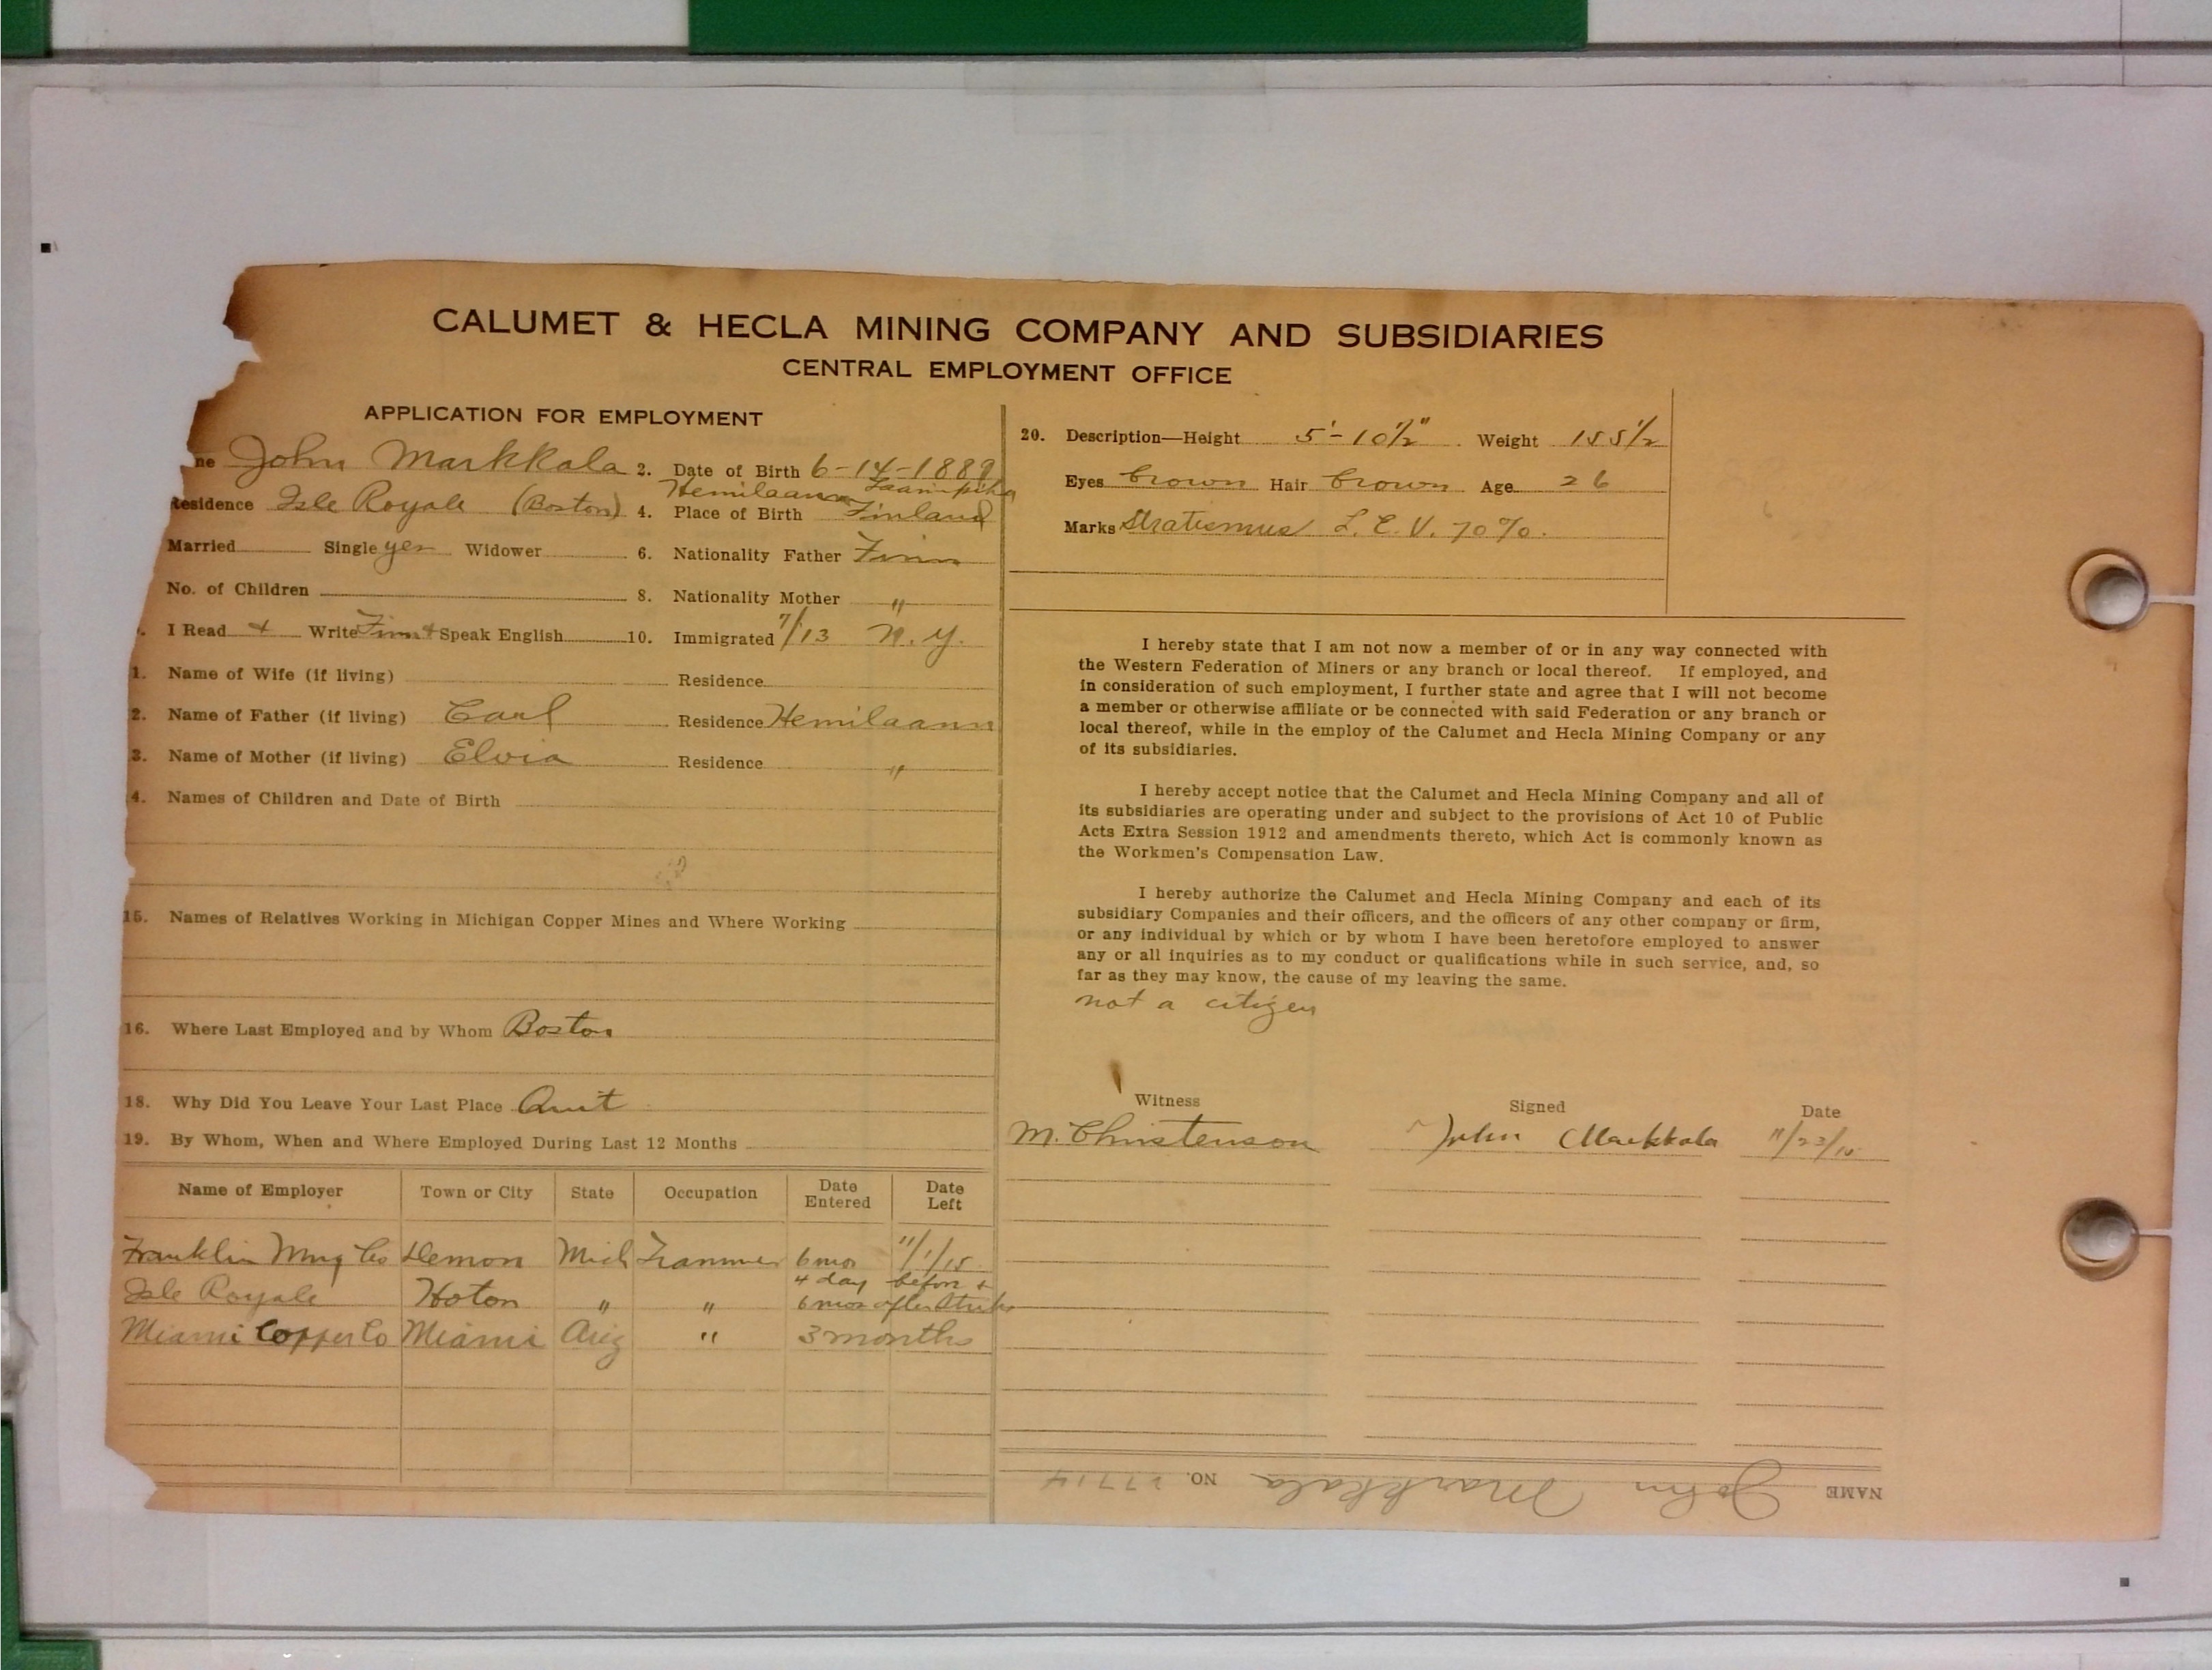 CALUMET & HECLA MINING COMPANY AND SUBSIDIARIES
CENTRAL EMPLOYMENT OFFICE
APPLICATION FOR EMPLOYMENT
ne John Markkala 2. Date of Birth 6-14-1889
Hemilaann
Residence Isle Royale (Boston) 4. Place of Birth Finland
Married Single yes Widower 6. Nationality Father Finn
No. of Children 8. Nationality Mother "
I Read + Write Finn + Speak English 10. Immigrated 7/13 N.Y.
1. Name of Wife (if living) Residence
2. Name of Father (if living) Carl Residence Hemilaann
3. Name of Mother (if living) Elvia Residence "
4. Names of Children and Date of Birth
15. Names of Relatives Working in Michigan Copper Mines and Where Working
16. Where Last Employed and by Whom Boston
18. Why Did You Leave Your Last Place Quit
19. By Whom, When and Where Employed During Last 12 Months
Name of Employer Town or City State Occupation Date Entered Date Left
Franklin Mng Co Demon Mich Trammer 6 mos 11/1/15
Isle Royale Hoton " " 4 day before + 6 mos after Strike
Miami Copper Co Miami Ariz " 3 months
20. Description—Height 5'-10½" Weight 155½
Eyes brown Hair brown Age 26
Marks L. E. V. 70%.
I hereby state that I am not now a member of or in any way connected with
the Western Federation of Miners or any branch or local thereof. If employed, and
in consideration of such employment, I further state and agree that I will not become
a member or otherwise affiliate or be connected with said Federation or any branch or
local thereof, while in the employ of the Calumet and Hecla Mining Company or any
of its subsidiaries.
I hereby accept notice that the Calumet and Hecla Mining Company and all of
its subsidiaries are operating under and subject to the provisions of Act 10 of Public
Acts Extra Session 1912 and amendments thereto, which Act is commonly known as
the Workmen's Compensation Law.
I hereby authorize the Calumet and Hecla Mining Company and each of its
subsidiary Companies and their officers, and the officers of any other company or firm,
or any individual by which or by whom I have been heretofore employed to answer
any or all inquiries as to my conduct or qualifications while in such service, and, so
far as they may know, the cause of my leaving the same.
not a citizen
Witness Signed Date
M. Christenson John Markkala 11/23/15
NAME John Markkala NO.